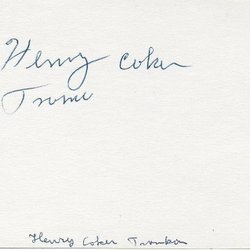 Henry Coker
Trom
Henry Coker Trombon